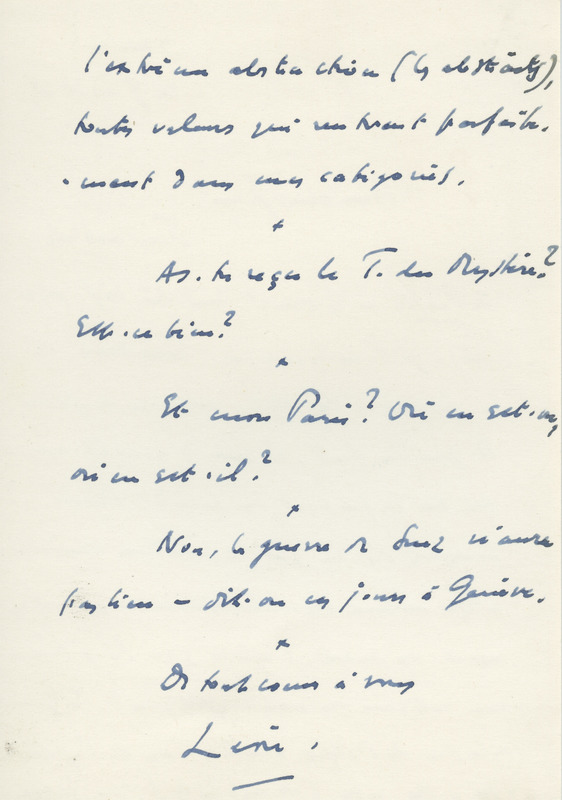 l'extrême abstraction (les abstraits),
toutes valeurs qui rentrent parfaite-
-ment dans mes catégories.
+
As-tu reçu le T. du Mystère?
Est-ce bien?
+
Et mon Paris? Où en est-on,
où en est-il?
+
Non, la guerre de Suez n'aura
pas lieu – dit-on ces jours à Genève.
+
De tout cœur à vous